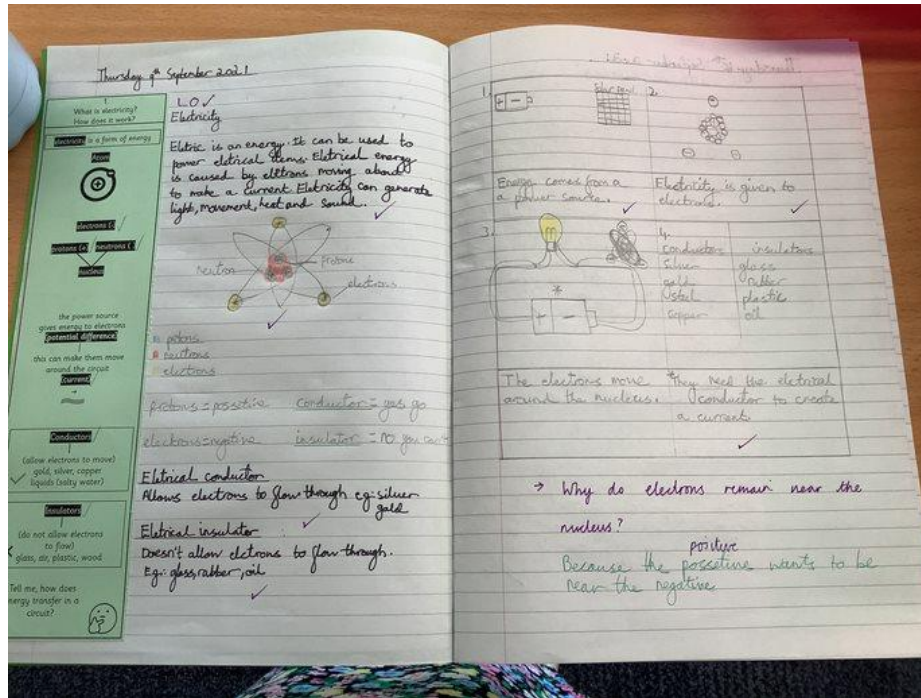 Thursday 9th September 2021
1
What is electricity?
How does it work?
electricity is a form of energy
Atom
electrons (-)
protons (+) neutrons ( )
nucleus
the power source
gives energy to electrons
(potential difference)
this can make them move
around the circuit
(current)
Conductors
(allow electrons to move)
gold, silver, copper
liquids (salty water)
Insulators
(do not allow electrons
to flow)
glass, air, plastic, wood
Tell me, how does
energy transfer in a
circuit?
LO
Electricity
Eletric is an energy. It can be used to
power eletrical items. Eletrical energy
is caused by eltrons moving about
to make a current. Eletricity can generate
light, movement, heat and sound.
neutron
protons
electrons
protons
neutrons
electrons
protons = possetive conductor = yas go
electrons = negitive insulator = no you can't
Eletrical conductor
Allows electrons to flow through eg: silver
gold
Eletrical insulator
Doesn't allow eletrons to flow through.
Eg: glass, rubber, oil
1.
+ -
Solar panel
Energy comes from a
a power source.
2.
Electricity is given to
electrons.
3.
*
+ -
The electrons move
around the nucleus.
4.
conductors insulators
Silver glass
gold rubber
steel plastic
copper oil
*They need the eletrical
conductor to create
a current
→ Why do electrons remain near the
nucleus?
positive
Because the possetive wants to be
near the negative